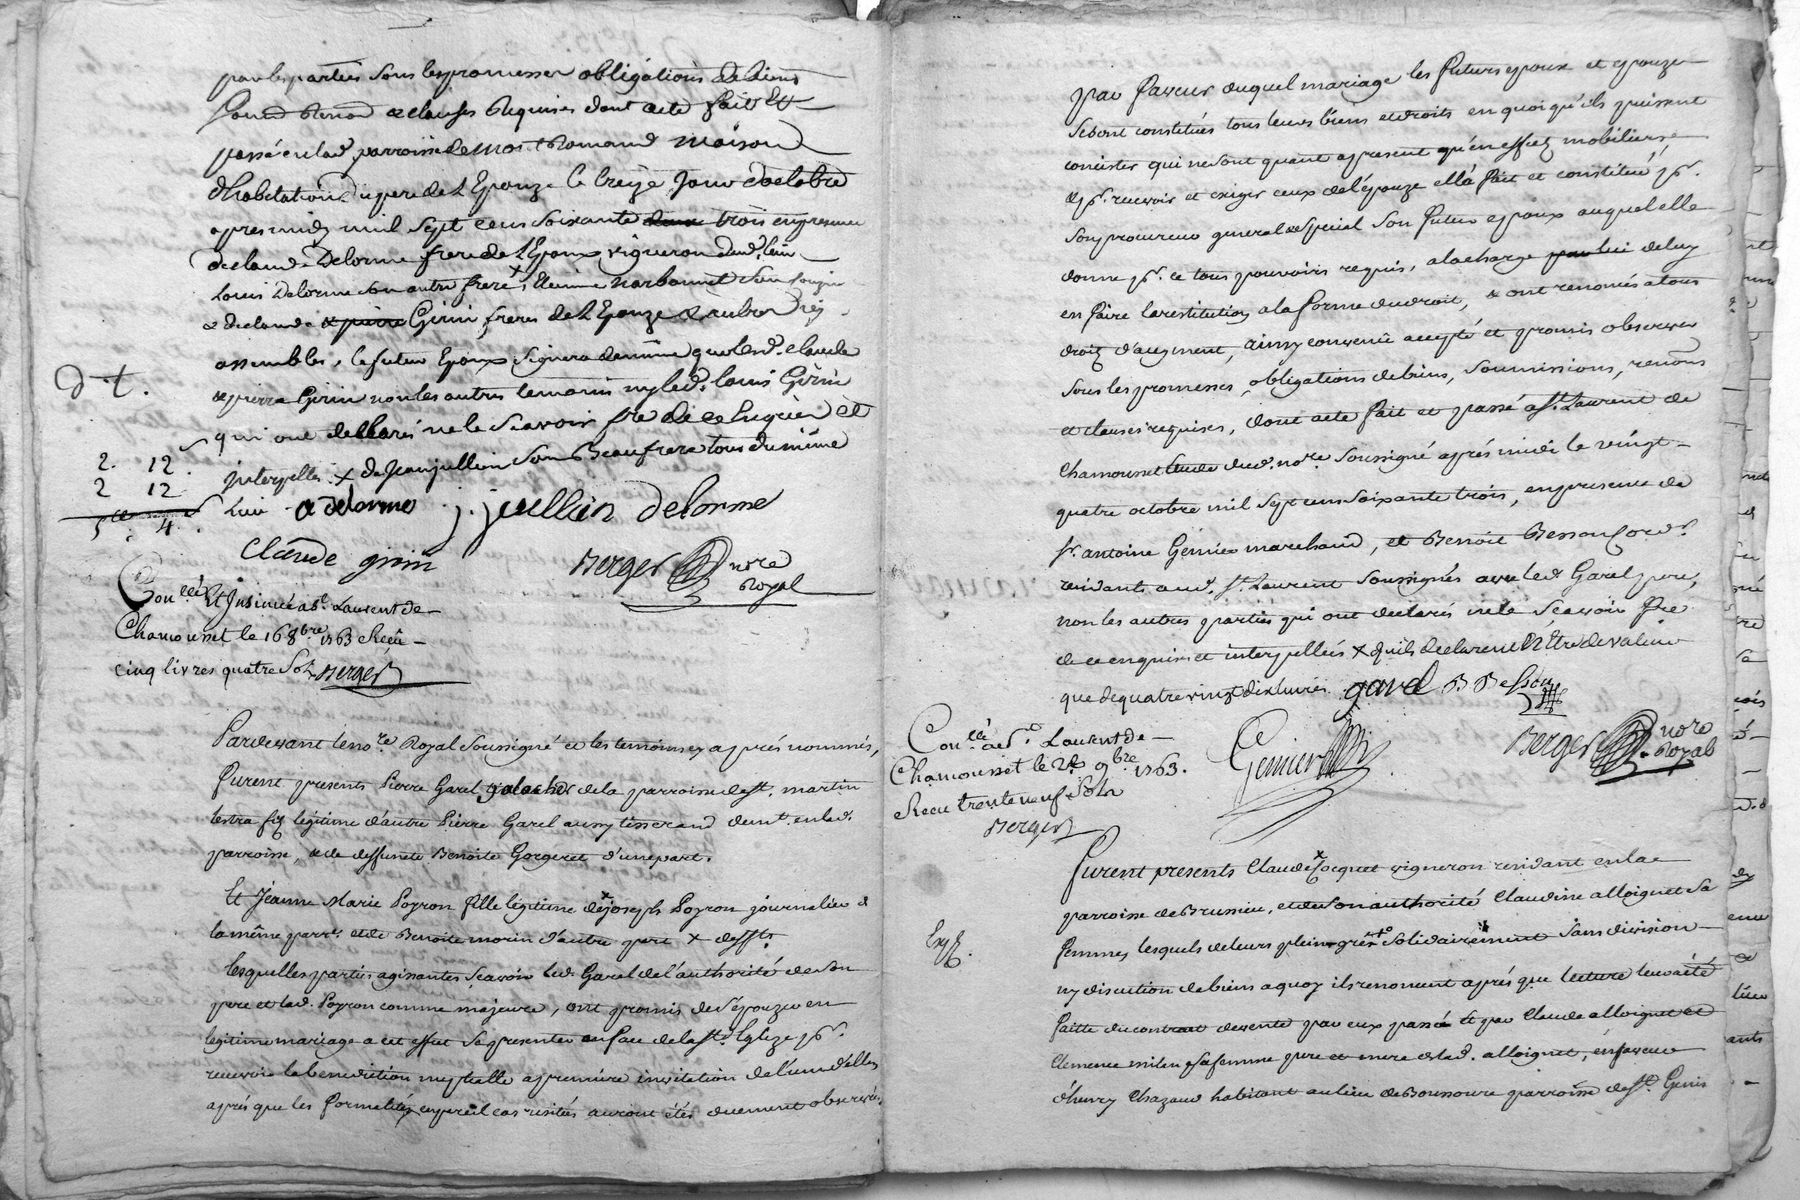 par les parties sous les promesses obligations de biens
passé en lad. parroisse de Mont Romand maison
d'habitation du pere de l'Epouze le treize jour d'octobre
apres midy mil sept cens soixante deux trois en presence
de claude Delorme frere de l'Epoux vigneron dud. lieu
Louis Delorme son autre frere, x Etienne narbonnet son cousin
& de claude & pierre Girin freres de l'Epouze &
assemblés, le futur Epoux signera de même que led. claude
& pierre Girin non les autres temoins ny led. louis Girin
qui ont declarés ne le scavoir fre de ce enquies et
interpellés x de Jean jullien son Beaufrere tous du même
Lieu a delorme j. jullien delorme
claude girin
Berger nore Royal
d t.
2. 12.
2 12
5ll 4s.
Conllé Et Insinué a st Laurent de
Chamousset le 16 8bre 1763 Reçu
cinq livres quatre sols Berger
Pardevant le nore Royal soussigné et les temoins cy aprés nommés,
furent presents Pierre Garel de la parroisse de st. martin
lestra fils légitime d'autre Pierre Garel aussy tisserand demt. en lad.
parroisse, & de deffunte Benoite Gorgeret d'une part.
Et Jeanne Marie Poyron fille légitime de x joseph Poyron journalier de
la même parre. et de Benoite morin d'autre part x deffts.
lesquelles parties agissantes scavoir led. Garel de l'authorité de son
pere et lad. Poyron comme majeure, ont promis de s'épouzer en
legitime mariage a cet effet se presenter en face de la ste Eglize pr.
recevoir la benediction nuptialle a premiere invitation de l'un d'elles
aprés que les formalités en pareil cas usitées auront étés duement observées.
par faveur duquel mariage les futurs epoux et epouze
se sont constitués tous leurs biens et droits en quoi qu'ils puissent
consister qui ne sont quant a present qu'en effets mobiliers,
& pr. recevoir et exiger ceux de l'épouze ell'a fait et constitué pr.
son procureur general & special son futur epoux auquel elle
donne pr. ce tous pouvoirs requis, a la charge par lui de luy
en faire la restitution a la forme du droit, & ont renoncés a tous
droits d'augment, ainsy convenû accepté et promis observer
sous les promesses, obligations de biens, soumissions, renons
et clauses requises, dont acte fait et passé a st. Laurent de
Chamousset Etude dud. nore. soussigné aprés midi le vingt
quatre octobre mil sept cens soixante trois, en presence de
sr. antoine Génier marchand, et Benoit Besson cordr.
residants aud. st. Laurent soussignés avec led. Garel pere,
non les autres parties qui ont declarés ne le scavoir fre
de ce enquis et interpellés x qu'ils declarent être de valeur
que de quatre vingt dix livres. garel B Besson
Genier
Berger nore Royal
Conllé a st. Laurent de
Chamousset le 9bre 1763.
Recu trente neuf sols
Berger
Furent presents Claude x Cocquet vigneron residant en la
parroisse de Brussieu, et de son authorité Claudine alloignet sa
femme, lesquels de leurs plein grés solidairement sans division
ny discution de biens a quoy ils renoncent aprés que lecture leur a été
faitte du contrat de vente par eux passé et par Claude alloignet et
Clemence milan sa femme pere et mere de lad. alloignet, en faveur
d'henry Chazaud habitant au lieu de Boussoure parroisse de st. Genis